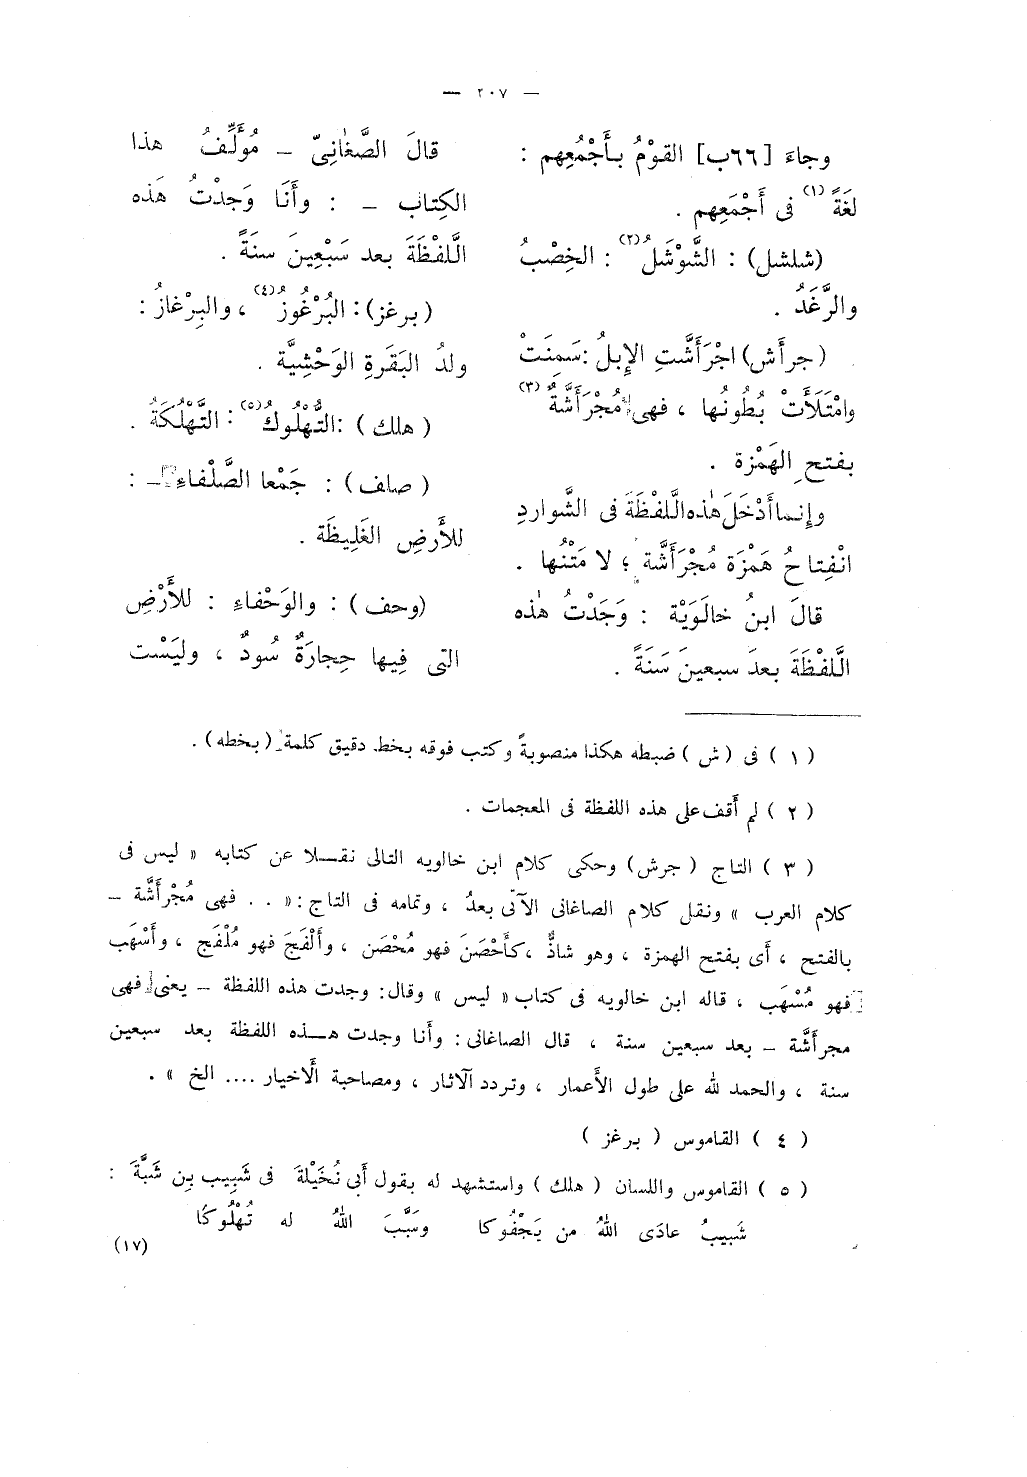 — ٢٠٧ —
وجاءَ [٦٦ب] القوْمُ بأَجْمُعِهم :
لغَةً (١) فى أَجْمَعِهم .
(شلشل) : الشَّوْشَلُ (٢) : الخِصْبُ
والرَّغَدُ .
(جرأش) اجْرَأَشَّتِ الإِبلُ : سَمِنَتْ
وامْتَلَأَتْ بُطُونُها ، فهى مُجْرَأَشَّةٌ (٣)
بفتح الهَمْزة .
وإنما أَدْخَلَ هٰذه الَّلفْظَةَ فى الشَّواردِ
انْفِتاحُ هَمْزَة مُجْرَأَشَّة ؛ لا مَتْنُها .
قالَ ابنُ خالَوَيْة : وَجَدْتُ هٰذه
الَّلفْظَةَ بعدَ سبعينَ سَنَةً .
قالَ الصَّغانِىّ – مُؤَلِّفُ هذا
الكِتابِ – : وأَنَا وَجدْتُ هَذه
الَّلفْظَةَ بعد سَبْعِينَ سنَةً .
(برغز) : البُرْغُوزُ (٤) ، والبِرْغازُ :
ولدُ البَقَرةِ الوَحْشِيَّة .
( هلك ) : التُّهْلُوكُ (٥) : التَّهْلُكَةُ .
( صلف ) : جَمْعا الصَّلْفاءِ – :
للأَرضِ الغَلِيظَة .
(وحف) : والوَحْفاءِ : للأَرْضِ
التى فِيها حِجارَةٌ سُودٌ ، وليَسْت
( ١ ) فى (ش) ضبطه هكذا منصوبةً وكتب فوقه بخط دقيق كلمة (بخطه) .
( ٢ ) لم أَقف على هذه اللفظة فى المعجمات .
( ٣ ) التاج ( جرش) وحكى كلام ابن خالويه التالى نقـلا عن كتابه « ليس فى
كلام العرب » ونقل كلام الصاغانى الآتى بعدُ ، وتمامه فى التاج : « . . فهى مُجْرَأَشَّة –
بالفتح ، أى بفتح الهمزة ، وهو شاذٌّ ، كَأَحْصَنَ فهو مُحْصَن ، وأَلْفَجَ فهو مُلْفَج ، وأَسْهَب
فهو مُسْهَب ، قاله ابن خالويه فى كتاب « ليس » وقال : وجدت هذه اللفظة – يعنى فهى
مجرأَشَّة – بعد سبعين سنة ، قال الصاغانى : وأنا وجدت هـذه اللفظة بعد سبعين
سنة ، والحمد لله على طول الأَعمار ، وتردد الآثار ، ومصاحبة الأَخيار .... الخ » .
( ٤ ) القاموس ( برغز )
( ٥ ) القاموس واللسان ( هلك ) واستشهد له بقول أَبى نُخَيْلةَ فى شَبِيب بِن شَبَّةَ :
شَبيبُ عادَى اللهُ من يَجْفُوكا وسَبَّبَ اللهُ له تُهْلُوكَا
(١٧)